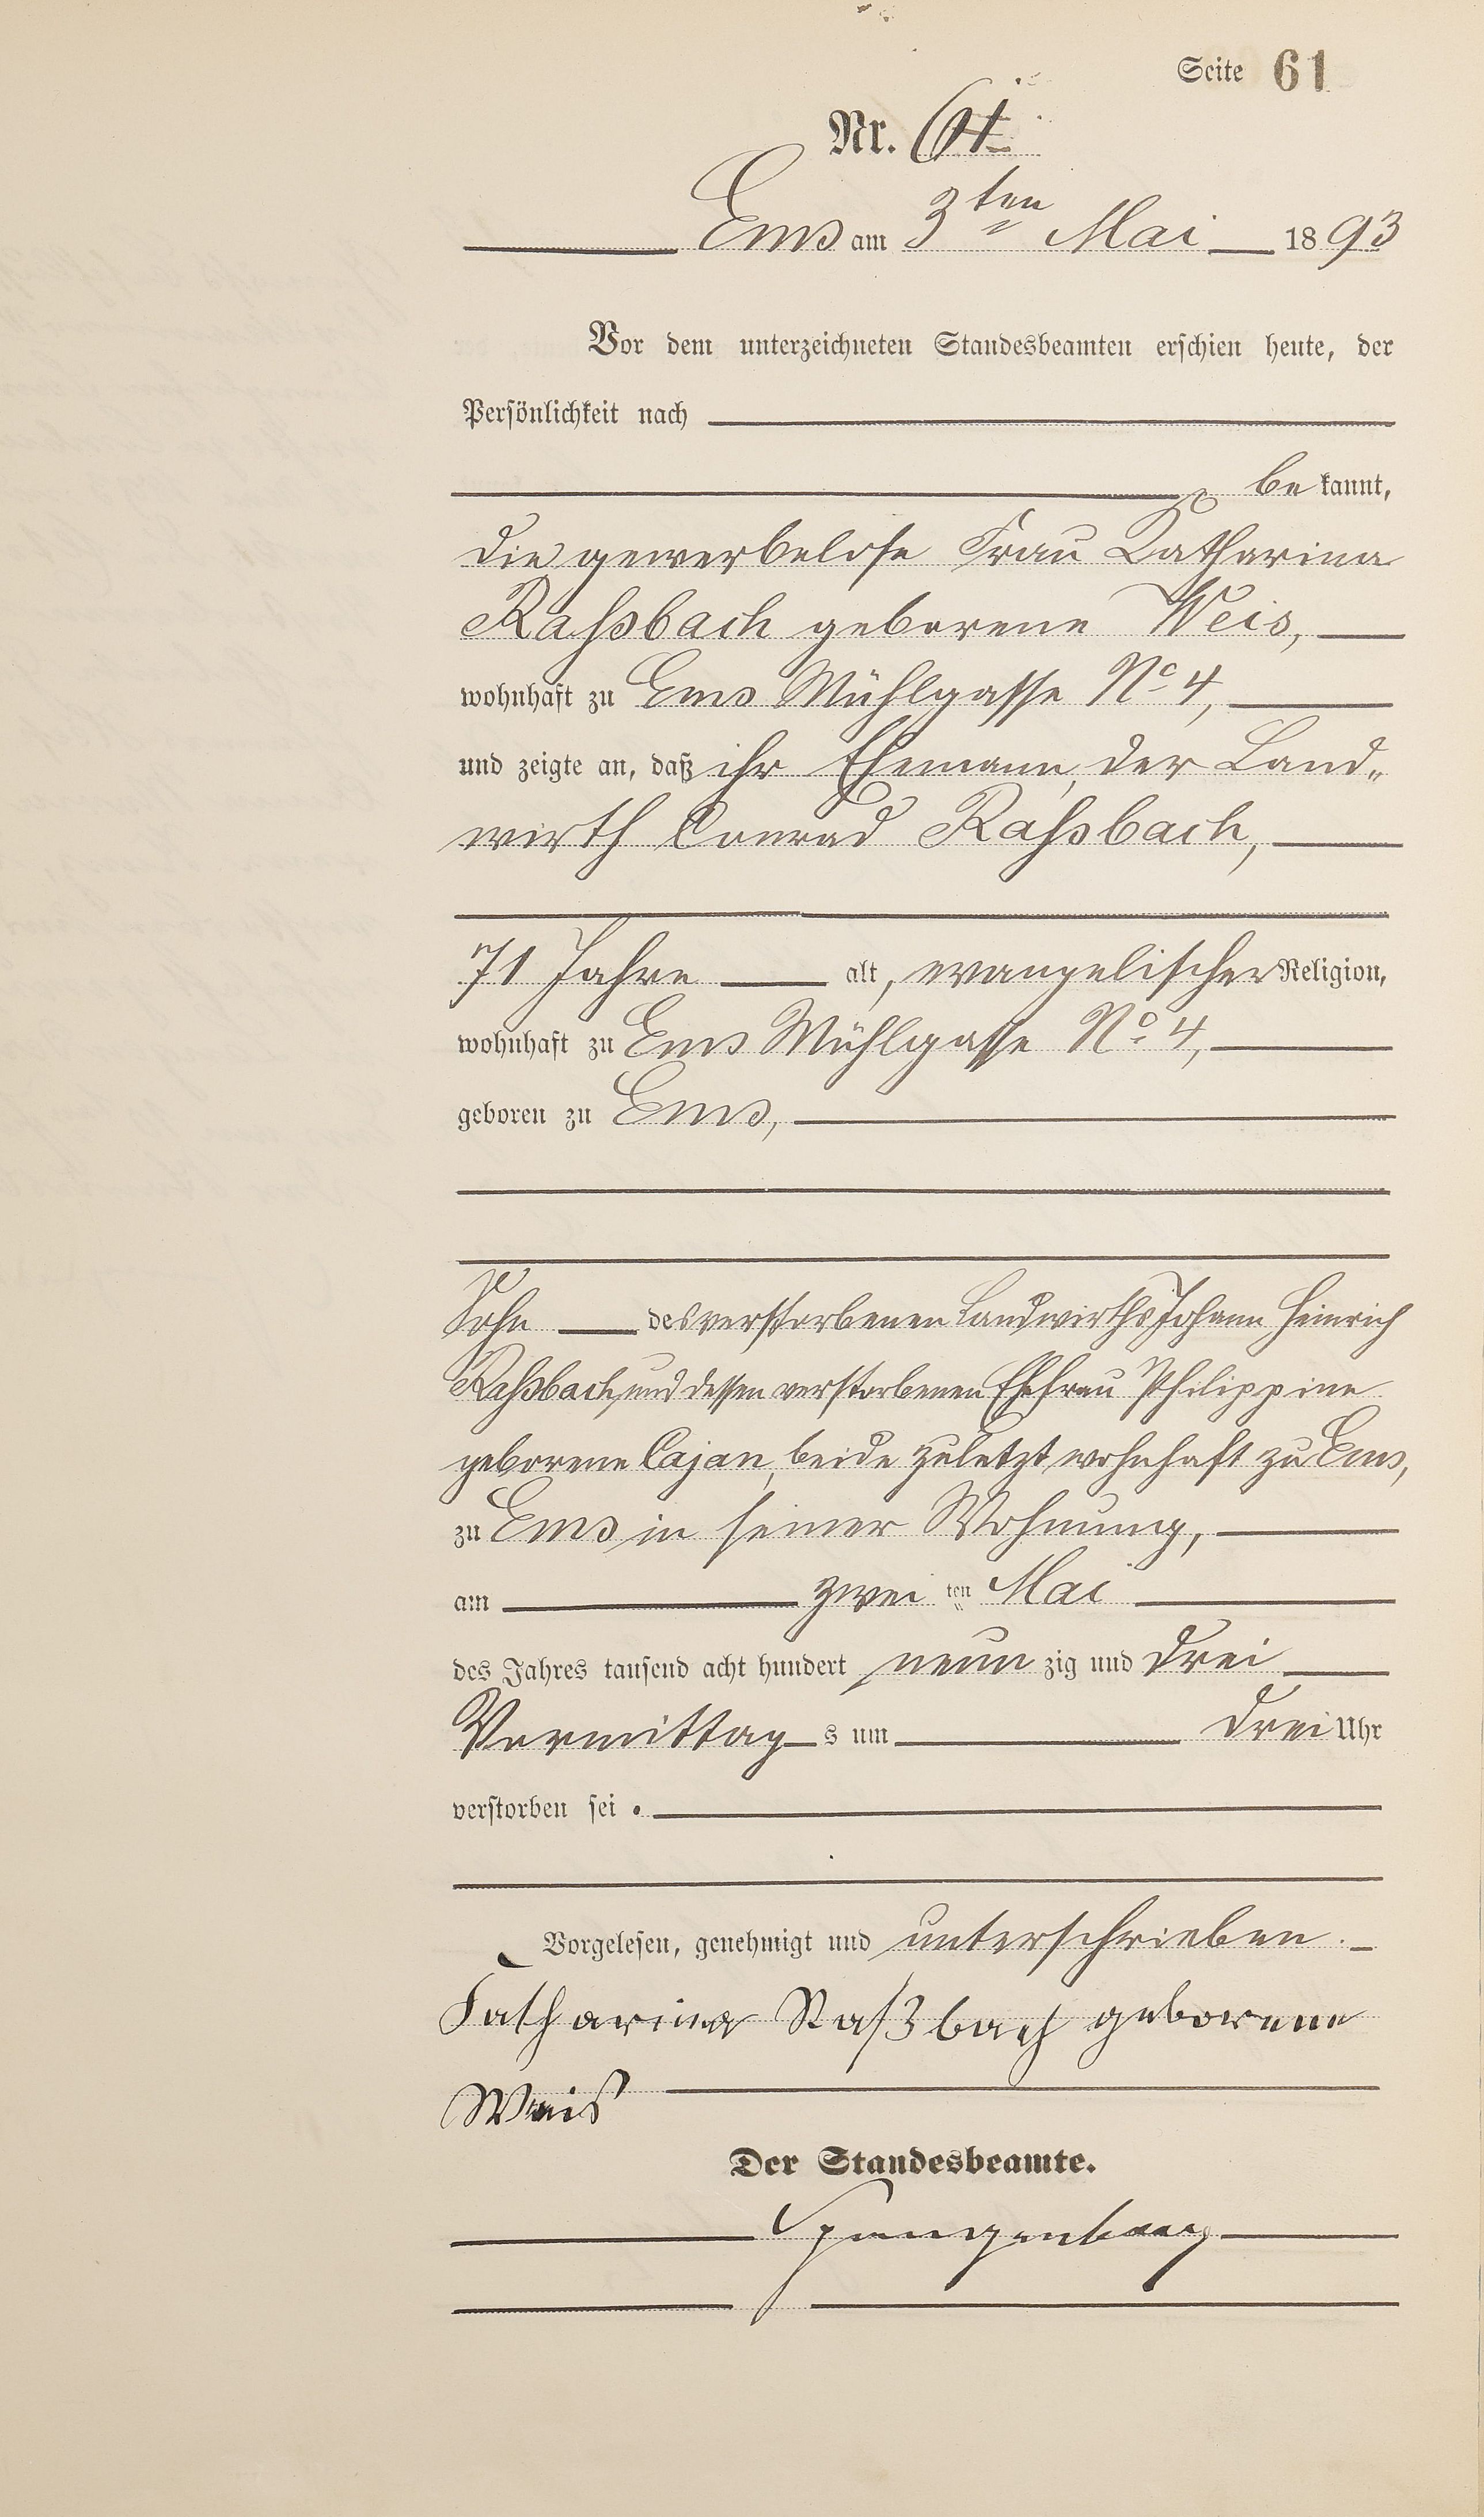 Seite 61
Nr. 61
Ems am 3ten Mai 1893
Vor dem unterzeichneten Standesbeamten erschien heute, der
Persönlichkeit nach
bekannt,
die gewerbelose Frau Katharina
Raßbach geborene Weis,
wohnhaft zu Ems Mühlgasse No 4,
und zeigte an, daß ihr Ehemann, der Land„
wirth Conrad Raßbach,
71 Jahre alt, evangelischer Religion,
wohnhaft zu Ems Mühlgasse No 4,
geboren zu Ems,
Sohn des verstorbenen Landwirths Johann Heinrich
Raßbach, und dessen verstorbenen Ehefrau Philippine
geborene Cajan, beide zuletzt wohnhaft zu Ems,
zu Ems in seiner Wohnung,
am zwei ten Mai
des Jahres tausend acht hundert neun zig und drei
Vormittag s um drei Uhr
verstorben sei.
Vorgelesen, genehmigt und unterschrieben.
Katharina Raßbach geborene
Weis
Der Standesbeamte.
Spangenberg